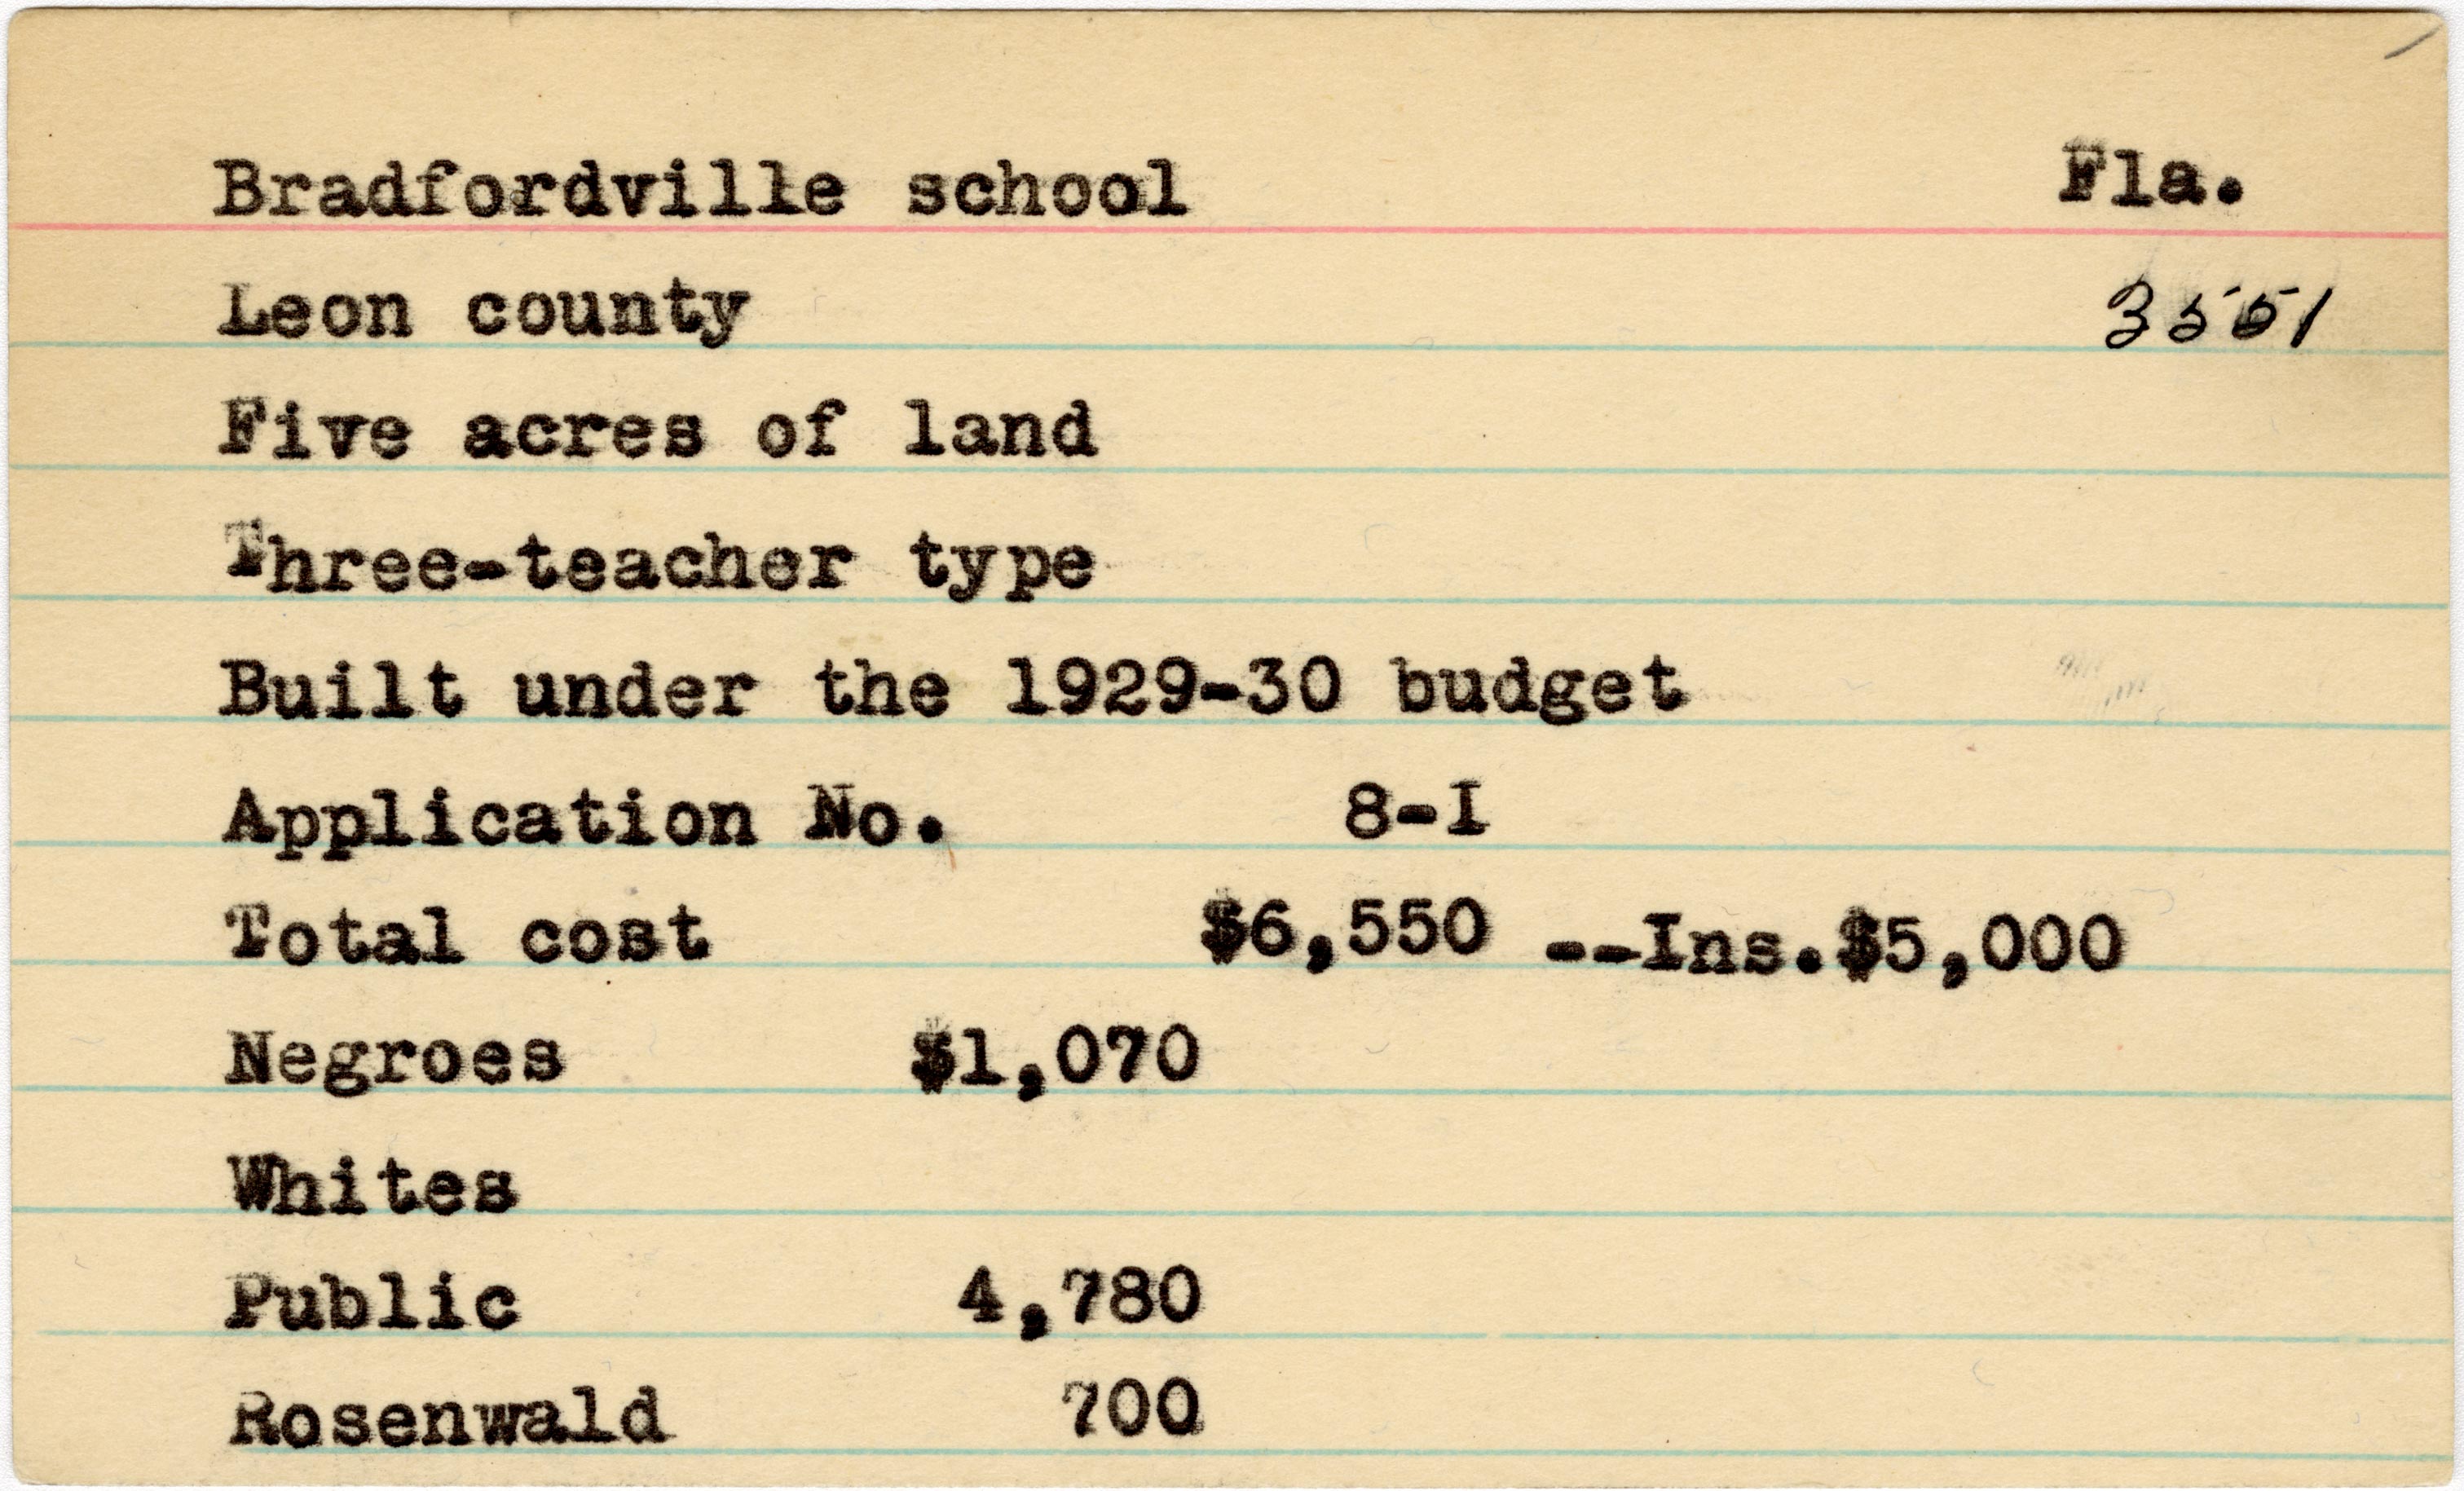 Bradfordville school Fla.
Leon county 3551
Five acres of land
Three-teacher type
Built under the 1929-30 budget
Application No. 8-I
Total cost $6,550 --Ins.$5,000
Negroes $1,070
Whites
Public 4,780
Rosenwald 700